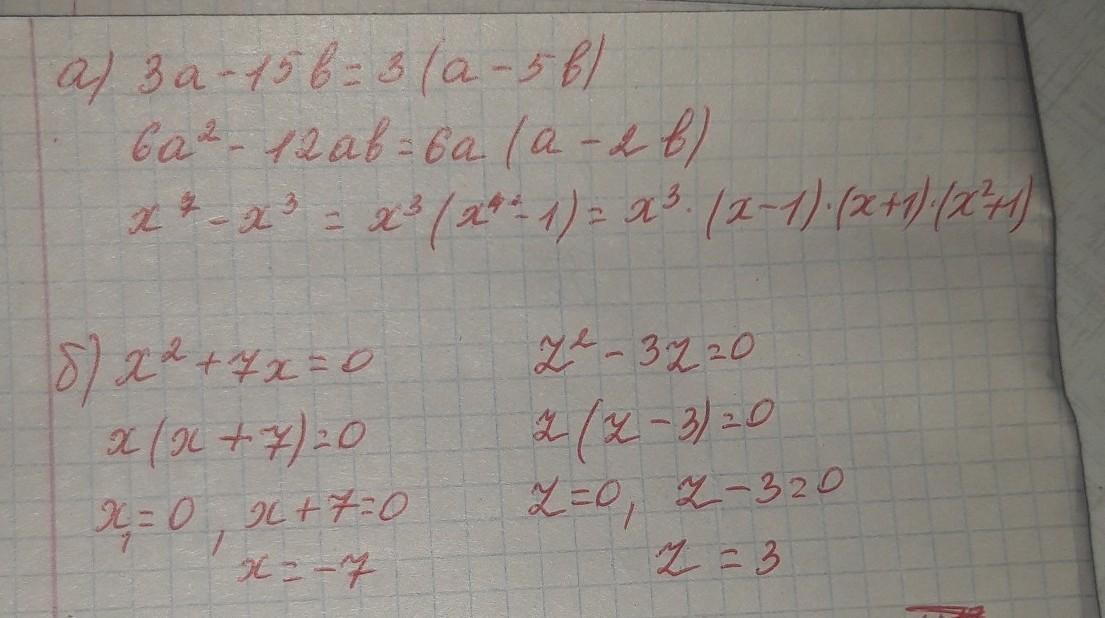 а) 3a - 15b = 3 (a - 5b)
6a² - 12ab = 6a (a - 2b)
x⁷ - x³ = x³ (x⁴ - 1) = x³ · (x-1) · (x+1) · (x²+1)
б) x² + 7x = 0
x (x + 7) = 0
x₁ = 0, x + 7 = 0
x = -7
z² - 3z = 0
z (z - 3) = 0
z = 0, z - 3 = 0
z = 3